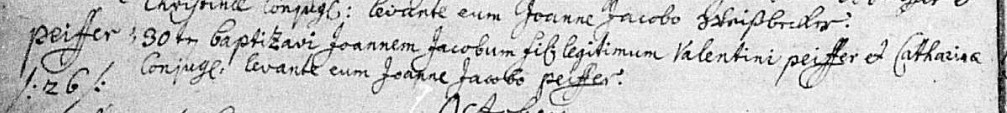 Christinæ Conjugl: levante eum Joanne Jacobo Weißbecker.
peiffer 30tn baptizavi Joannem Jacobum fil: legitimum Valentini peiffer et Catharinæ
/:26:/ Conjugl: levante eum Joanne Jacobo peiffer.